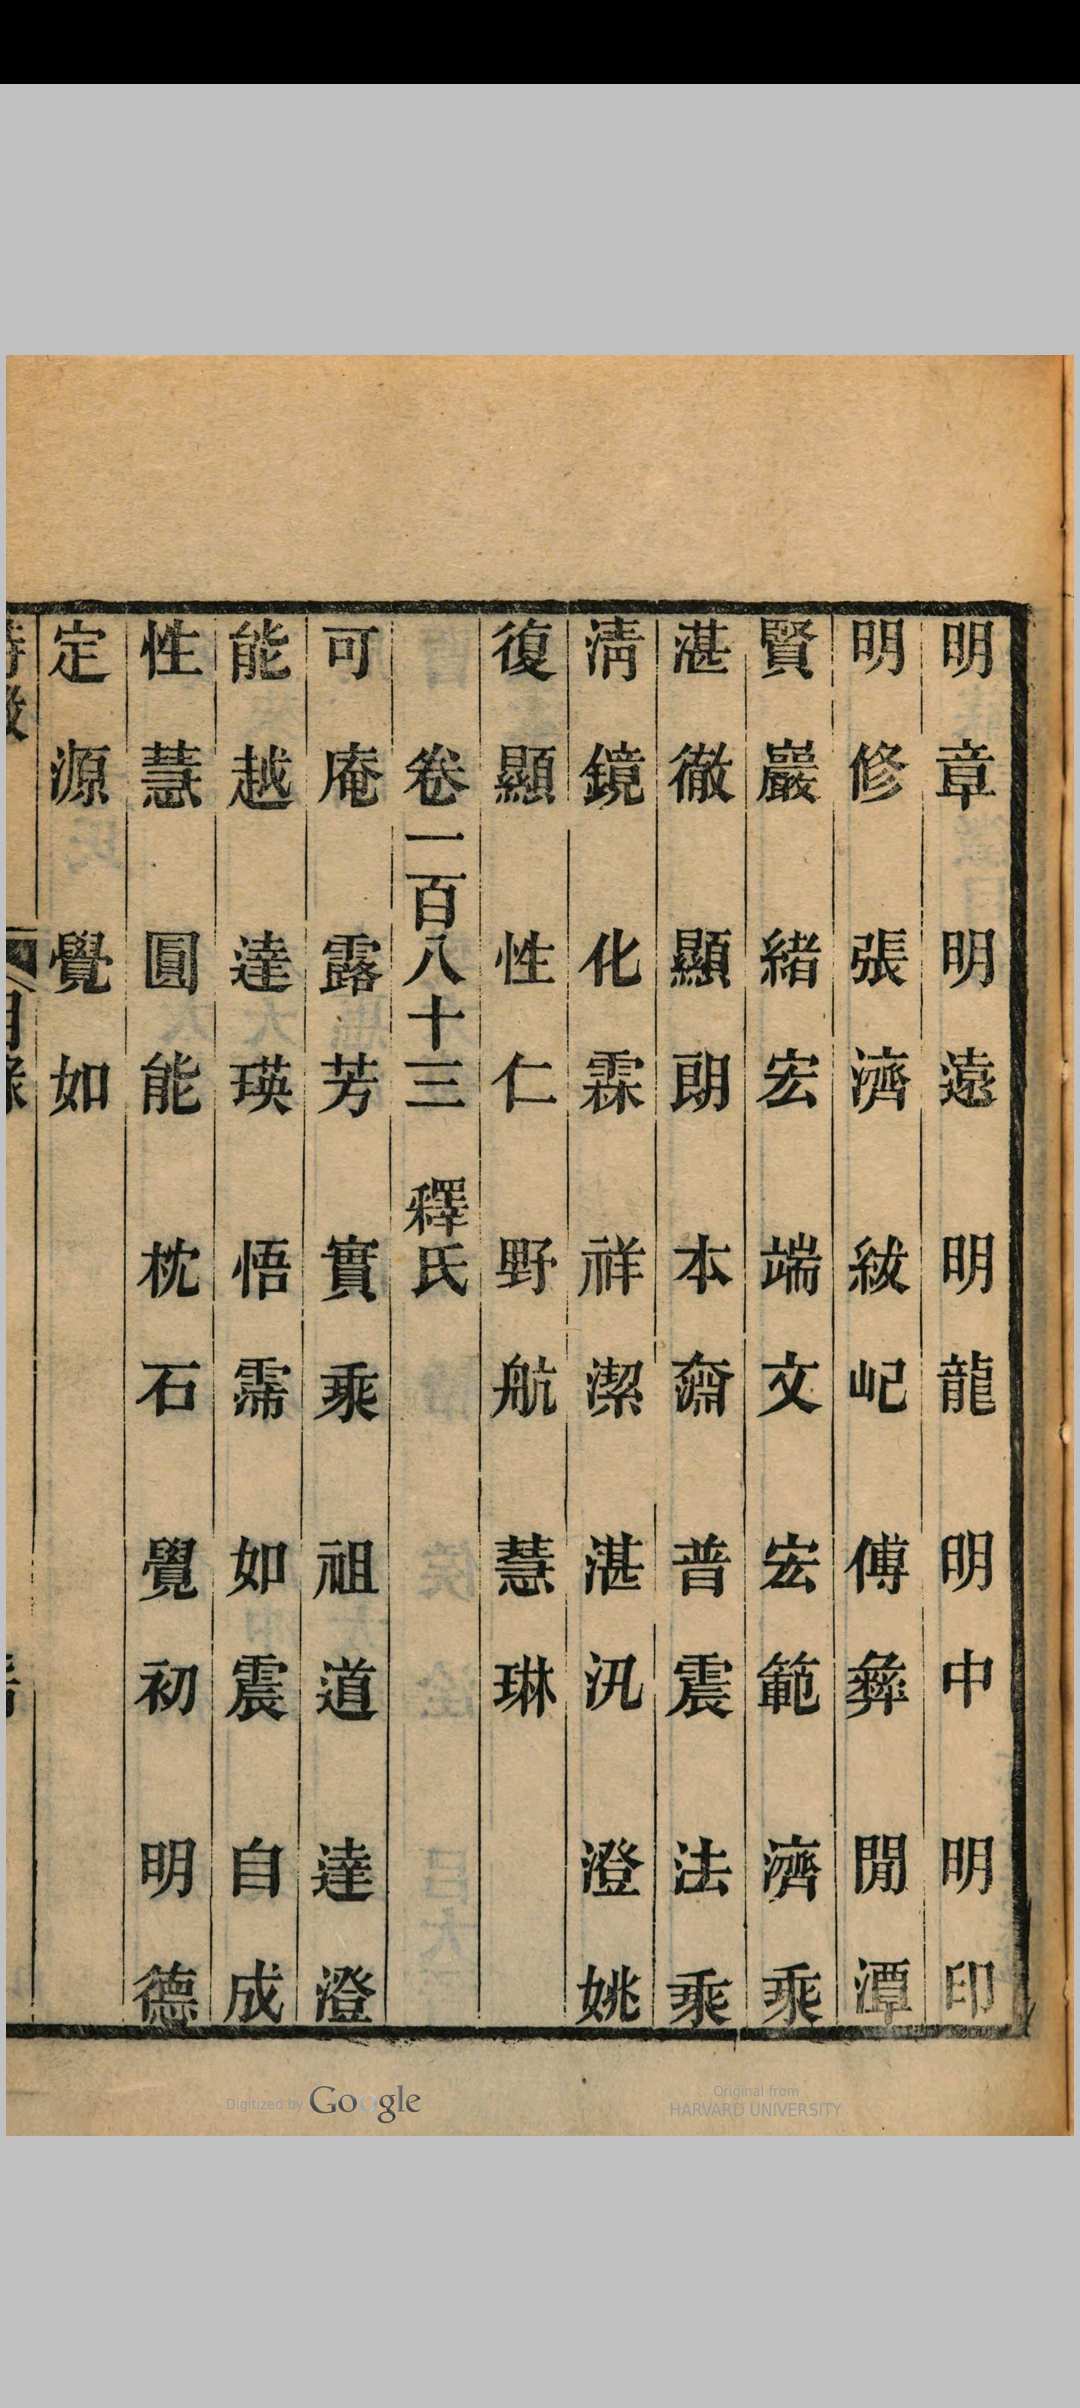 明章　明遠　明龍　明中　明印
明修　張濟　紱屺　傅彝　閒潭
賢巖　緒宏　端文　宏範　濟乘
湛徹　顯朗　本齋　普震　法乘
清鏡　化霖　祥潔　湛汎　澄姚
復顯　性仁　野航　慧琳
卷一百八十三　釋氏
可庵　露芳　實乘　祖道　達澄
能越　達瑛　悟霈　如震　自成
性慧　圓能　枕石　覺初　明德
定源　覺如
Digitized by Google
Original from
HARVARD UNIVERSITY